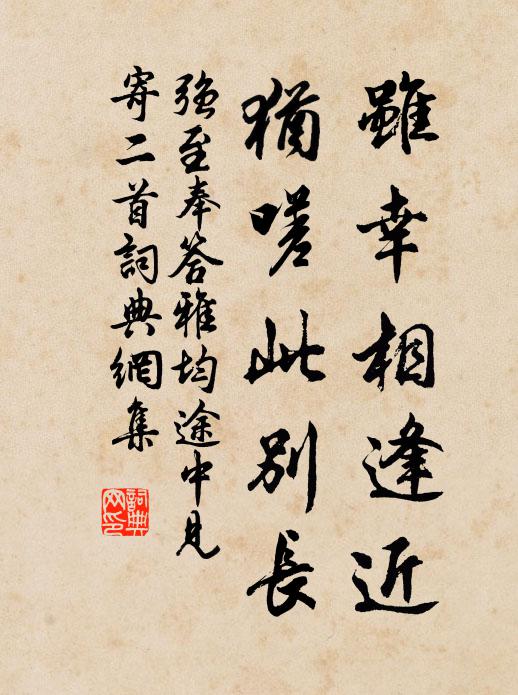 雖幸相逢近
猶嗟此別長
強至奉答雅均途中見
寄二首詞典網集
詞典
网印